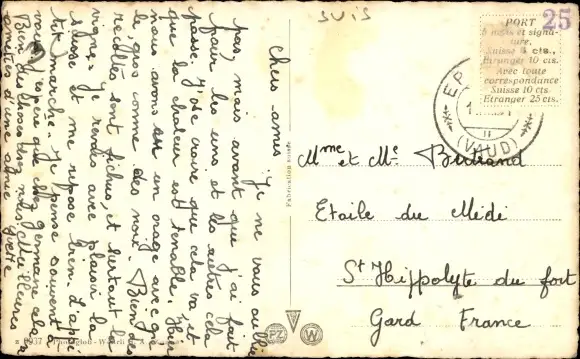 SUIS
25
Chers amis. Je ne vous oublie
pas, mais avant que j'ai fait
pour les uns et les autres cela
passe. J'ose croire que cela va et
que la chaleur est tenable. Hier
nous avons eu un orage avec grê
le, gros comme des noix. Bien des
recoltes sont fichues, et surtout la
vigne. Je rendes avec plaisir la
Suisse et me repose bien. L'appé
tit marche. Je pense souvent à
vous. J'espère que chez Germaine cela va
Bien des choses chez vous Meilleures
amitiés d'une amie Yvette
PORT
5 mots et signa-
ture.
Suisse 5 cts.,
Etranger 10 cts.
Avec toute
correspondance
Suisse 10 cts
Etranger 25 cts.
EP
(VAUD)
Fabrication suisse
Mme et Mr Bertrand
Etoile du Midi
St Hippolyte du fort
Gard France
PZ W